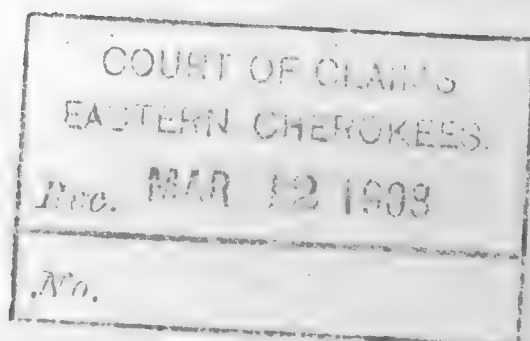 COURT OF CLAIMS
EASTERN CHEROKEES.
Rec. MAR 12 1908
No.